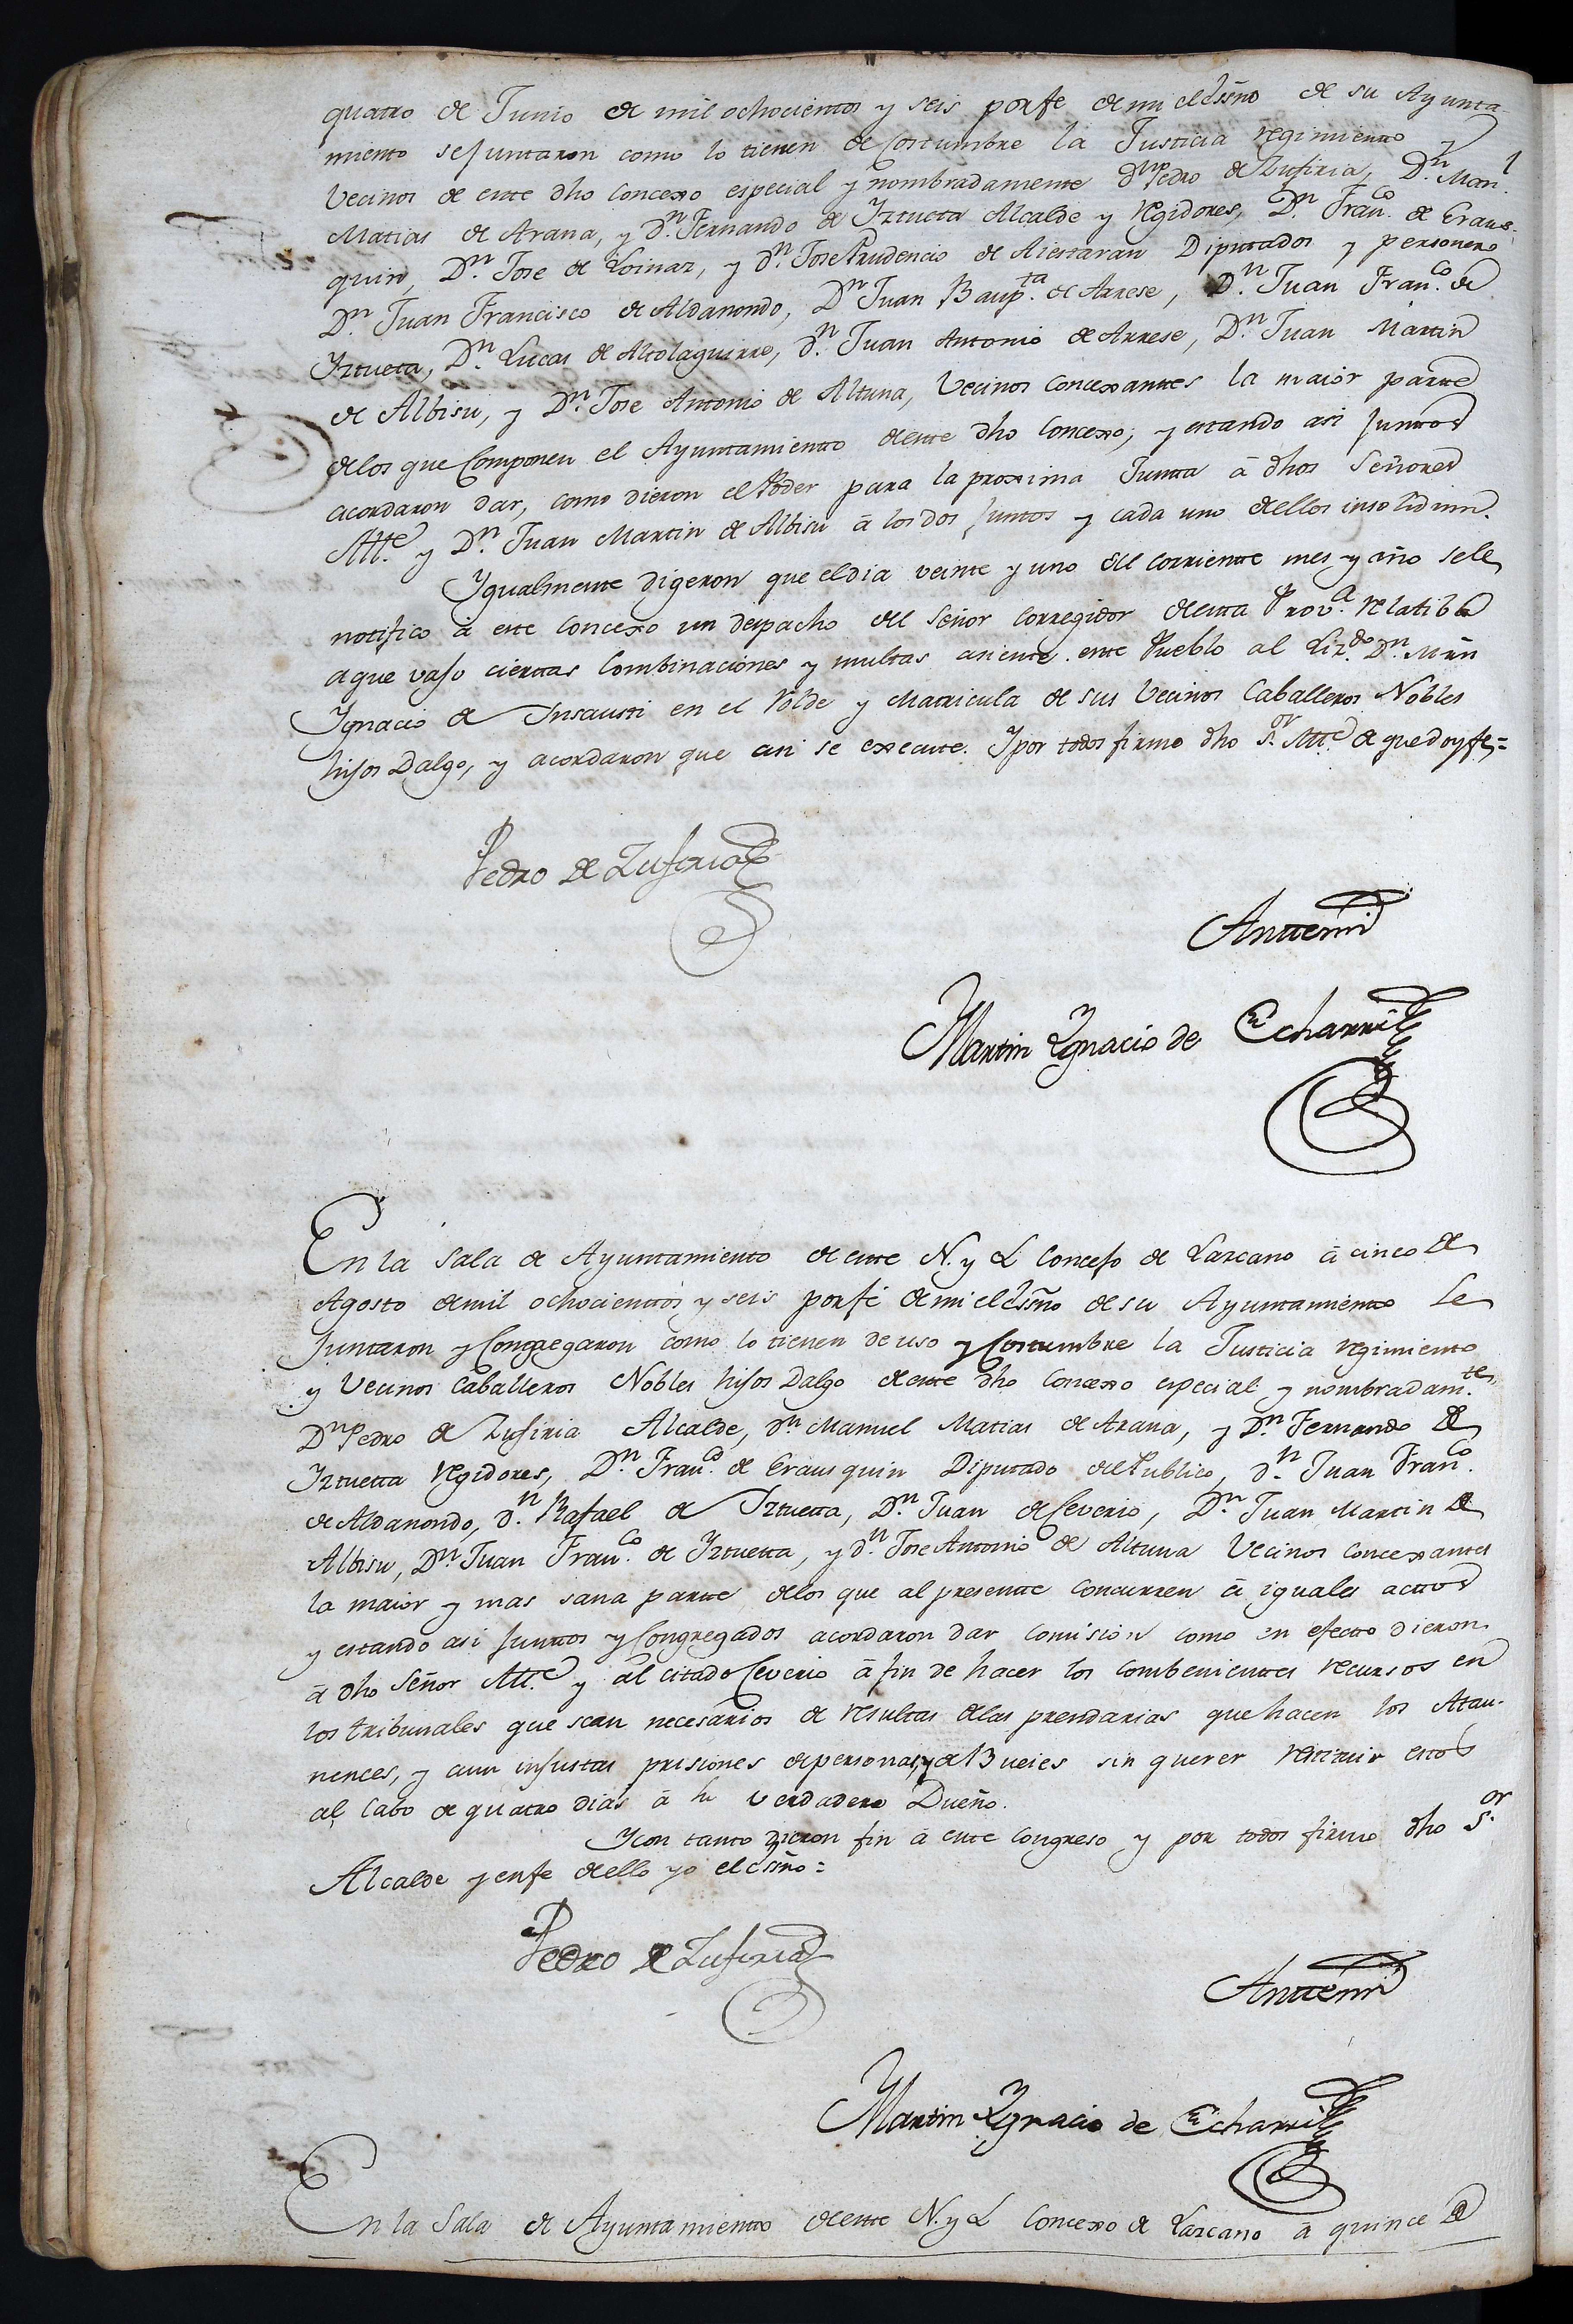 quatro de Junio de mil ochocientos y seis por fe de mi el Essno de su Ayunta
miento se juntaron como lo tienen de Costumbre la Justicia regimiento y
Vecinos de este dho Concexo especial y nombradamente Dn Pedro de Zufiria, Dn Manl
Matias de Arana, y Dn Fernando de Yztueta Alcalde y Regidores, Dn Franco de Eraus-
quin, Dn Jose de Loinaz, y Dn Jose Prudencio de Aiestaran Diputados y personero
Dn Juan Francisco de Aldanondo, Dn Juan Baupta de Arrese, Dn Juan Franco de
Yztueta, Dn Lucas de Altolaguirre, Dn Juan Antonio de Arrese, Dn Juan Martin
de Albisu, y Dn Jose Antonio de Altuna, Vecinos Concexantes la maior parte
delos que Componen el Ayuntamiento deste dho Concexo; y estando asi Juntos
acordaron dar, como dieron el Poder para la proxima Junta á dhos Señores
Alle y Dn Juan Martin de Albisu á los dos Juntos y cada uno dellos insolidum.
Ygualmente digeron que el dia veinte y uno del corriente mes y año se le
notifico á este Concexo un despacho del Señor Corregidor desta Prova relatibo
a que vajo ciertas Combinaciones y multas asiente este Pueblo al Lizdo Dn Mrñ
Ygnacio de Insausti en el Rolde y Matricula de sus Vecinos Caballeros Nobles
hijos Dalgo, y acordaron que asi se execute. Y por todos firmo dho Sr Alle de que doy fe,=
Pedro de Zufiria
Antemi
Martin Ygnacio de Echarri
En la Sala de Ayuntamiento de este N. y L Concejo de Lazcano á cinco de
Agosto de mil ochocientos y seis por fé de mi el Essño de su Ayuntamiento se
Juntaron y Congregaron como lo tienen de uso y Costumbre la Justicia regimiento
y Vecinos Caballeros Nobles hijos Dalgo de este dho Concexo especial y nombradamte
Dn Pedro de Zufiria Alcalde, Dn Manuel Matias de Arana, y Dn Fernando de
Yztuetta regidores, Dn Franco de Erausquin Diputado del Publico, Dn Juan Franco
de Aldanondo, Dn Rafael de Yztuetta, Dn Juan de Ceverio, Dn Juan Martin de
Albisu, Dn Juan Franco de Yztuetta, y Dn Jose Antonio de Altuna Vecinos Concexantes
la maior y mas sana parte delos que al presentte concurren á iguales acttos
y estando asi Junttos y Congregados acordaron dar comision como en efectto dieron
á dho Señor Alle y al citado Ceverio á fin de hacer los combenienttes recursos en
los tribunales que sean necesarios de resultas delas prendarias que hacen los Atau-
nences, y aun injustas prisiones de personas, y de Bueies sin querer restituir estos
al cabo de quatro dias á su verdadero Dueño.
Y con tanto dieron fin á este Congreso y por todos firmo dho Sor
Alcalde y en fe dello yo el Essño=
Pedro de Zufiria
Antemi
Martin Ygnacio de Echarri
En la Sala de Ayuntamiento deste N. y L Concexo de Lazcano á quince de